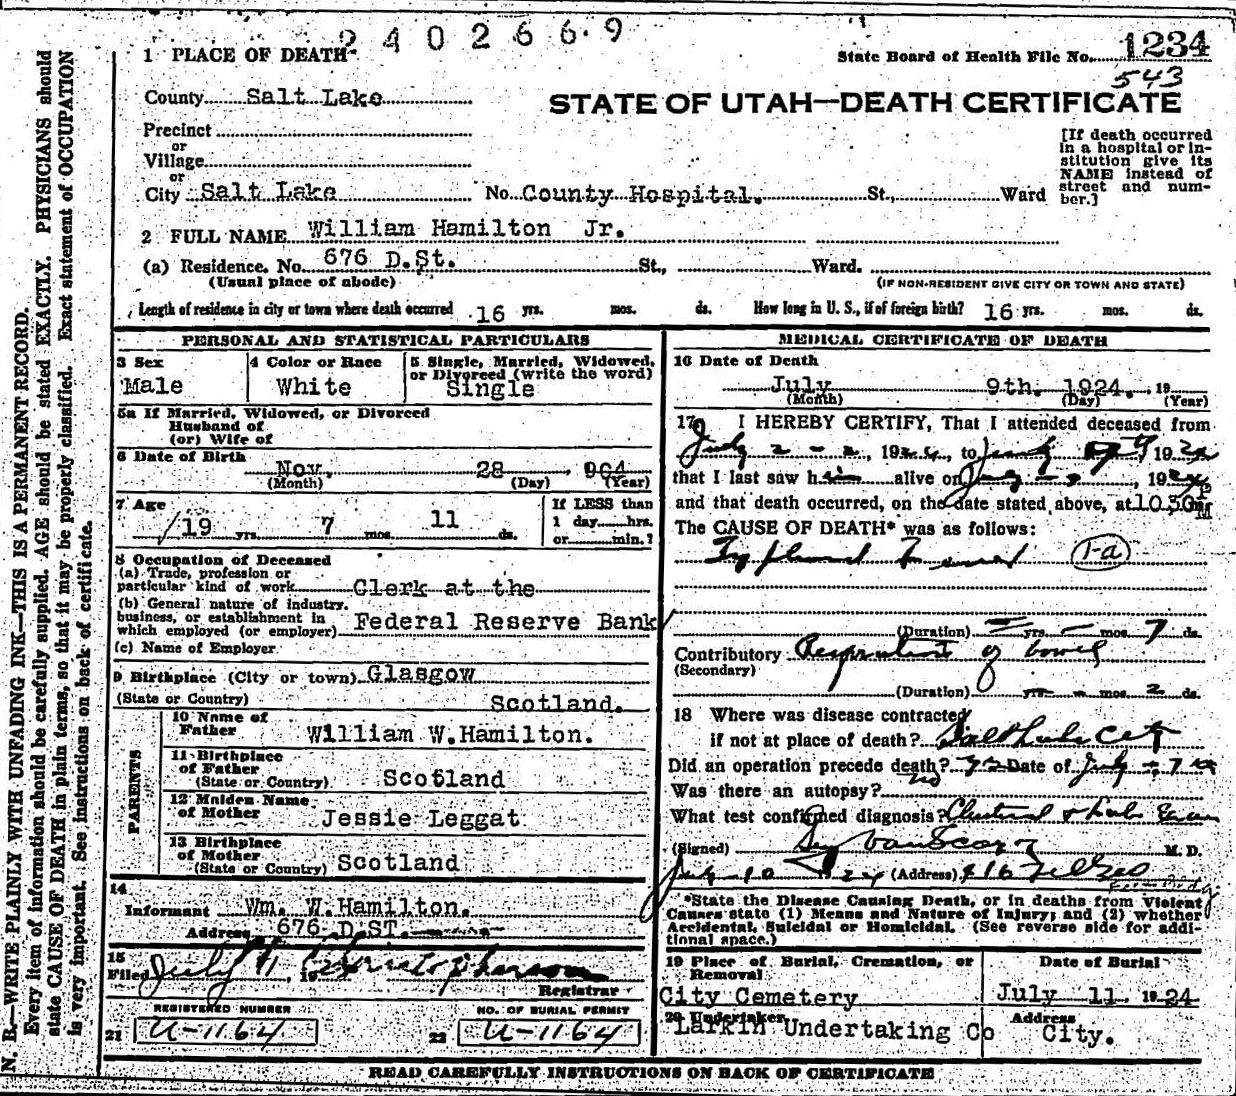 2402669
1 PLACE OF DEATH
State Board of Health File No. 1234
543
County Salt Lake
STATE OF UTAH—DEATH CERTIFICATE
Precinct
or
Village
or
City Salt Lake No. County Hospital. St., Ward
[If death occurred
in a hospital or in-
stitution give its
NAME instead of
street and num-
ber.]
2 FULL NAME William Hamilton Jr.
(a) Residence. No. 676 D.St. St., Ward.
(Usual place of abode)
(IF NON-RESIDENT GIVE CITY OR TOWN AND STATE)
Length of residence in city or town where death occurred 16 yrs. mos. ds. How long in U. S., if of foreign birth? 16 yrs. mos. ds.
PERSONAL AND STATISTICAL PARTICULARS
3 Sex
Male
4 Color or Race
White
5 Single, Married, Widowed,
or Divorced (write the word)
Single
5a If Married, Widowed, or Divorced
Husband of
(or) Wife of
6 Date of Birth
Nov. 28 , 904
(Month) (Day) (Year)
7 Age
19 yrs. 7 mos. 11 ds.
If LESS than
1 day hrs.
or min.?
8 Occupation of Deceased
(a) Trade, profession or
particular kind of work Clerk at the
(b) General nature of industry,
business, or establishment in
which employed (or employer) Federal Reserve Bank
(c) Name of Employer
9 Birthplace (City or town) Glasgow
(State or Country) Scotland.
PARENTS
10 Name of
Father William W.Hamilton.
11 Birthplace
of Father
(State or Country) Scotland
12 Maiden Name
of Mother Jessie Leggat
13 Birthplace
of Mother
(State or Country) Scotland
14
Informant Wm. W.Hamilton.
Address 676 D.ST.
15
Filed July 11
Registrar
REGISTERED NUMBER
21 U-1164
NO. OF BURIAL PERMIT
22 U-1164
MEDICAL CERTIFICATE OF DEATH
16 Date of Death
July 9th. 1924. 19
(Month) (Day) (Year)
17 I HEREBY CERTIFY, That I attended deceased from
July 2 , 1924, to July 9 1924
that I last saw him alive on July 9, 1924
and that death occurred, on the date stated above, at 1030 P M
The CAUSE OF DEATH* was as follows:
Typhoid Fever 1-a
(Duration) yrs. mos. 7 ds.
Contributory of bowel
(Secondary)
(Duration) yrs. mos. 2 ds.
18 Where was disease contracted
if not at place of death? Salt Lake City
Did an operation precede death? Yes Date of July 7
Was there an autopsy? no
What test confirmed diagnosis? Clinical &
(Signed) M. D.
July 10 1924 (Address)
*State the Disease Causing Death, or in deaths from Violent
Causes state (1) Means and Nature of Injury; and (2) whether
Accidental, Suicidal or Homicidal. (See reverse side for addi-
tional space.)
19 Place of Burial, Cremation, or
Removal
City Cemetery
Date of Burial
July 11, 1924
20 Undertaker
Larkin Undertaking Co
Address
City.
READ CAREFULLY INSTRUCTIONS ON BACK OF CERTIFICATE
N. B.—WRITE PLAINLY WITH UNFADING INK—THIS IS A PERMANENT RECORD.
Every item of information should be carefully supplied. AGE should be stated EXACTLY. PHYSICIANS should
state CAUSE OF DEATH in plain terms, so that it may be properly classified. Exact statement of OCCUPATION
is very important. See instructions on back of certificate.